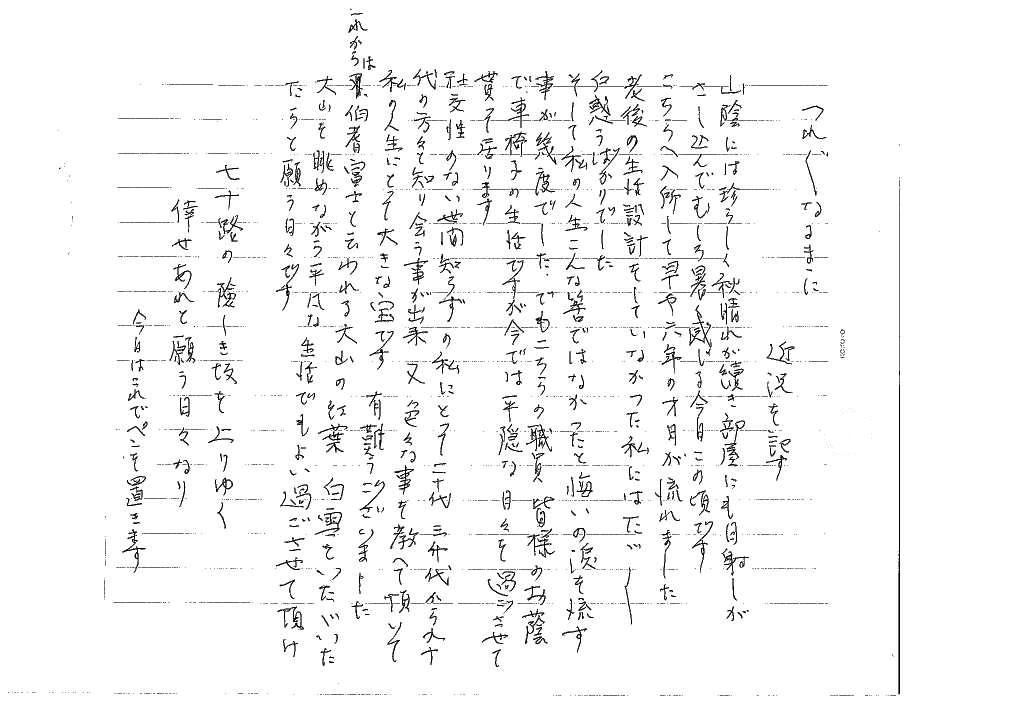 つれ〴〵なるままに
近況を記す
山陰には珍らしく秋晴れが続き部屋にも日射しが
さし込んでむしろ暑く感じる今日この頃です
こちらへ入所して早や六年の才月が流れました
老後の生活設計をしていなかった私にはただ〳〵
戸惑うばかりでした
そして私の人生こんな筈ではなかったと悔いの涙を流す
事が幾度でした でもこちらの職員皆様のお蔭
で車椅子の生活ですが今では平隠な日々を過ごさせて
貰って居ります
社交性のない世間知らずの私にとって二十代 三十代から九十
代の方々と知り会う事が出来 又 色々な事を教へて頂いて
私の人生にとって大きな宝です 有難うございました
これからは 伯耆富士と云われる大山の紅葉 白雪をいただいた
大山を眺めながら平凡な生活でもよい過ごさせて頂け
たらと願う日々です
七十路の険しき坂を上りゆく
倖せあれと願う日々なり
今日はこれでペンを置きます